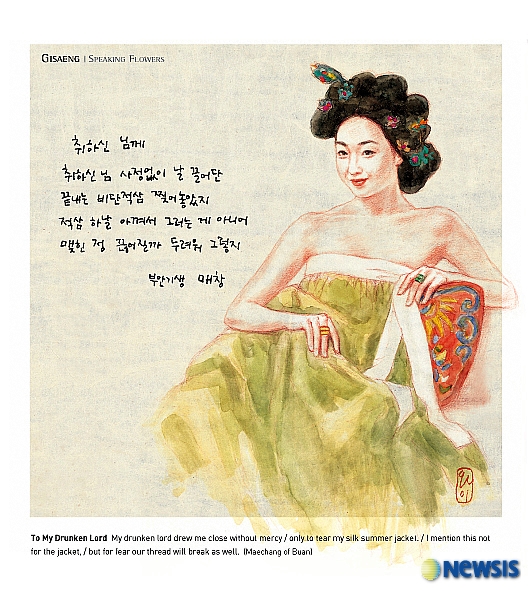 GISAENG | SPEAKING FLOWERS
취하신 님께
취하신 님 사정없이 날 끌어단
끝내는 비단적삼 찢어놓았지
적삼 하날 아껴서 그러는 게 아니어
맺힌 정 끊어질까 두려워 그렇지
부안기생 매창
To My Drunken Lord My drunken lord drew me close without mercy / only to tear my silk summer jacket. / I mention this not
for the jacket, / but for fear our thread will break as well. (Maechang of Buan)
NEWSIS